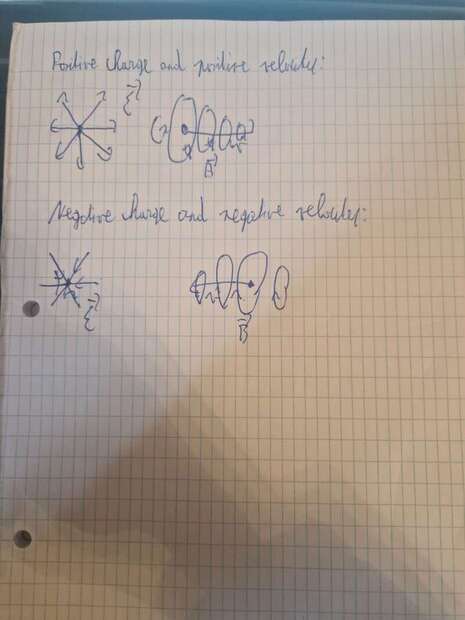 Positive charge and positive velocity:
E
B
Negative charge and negative velocity:
E
B